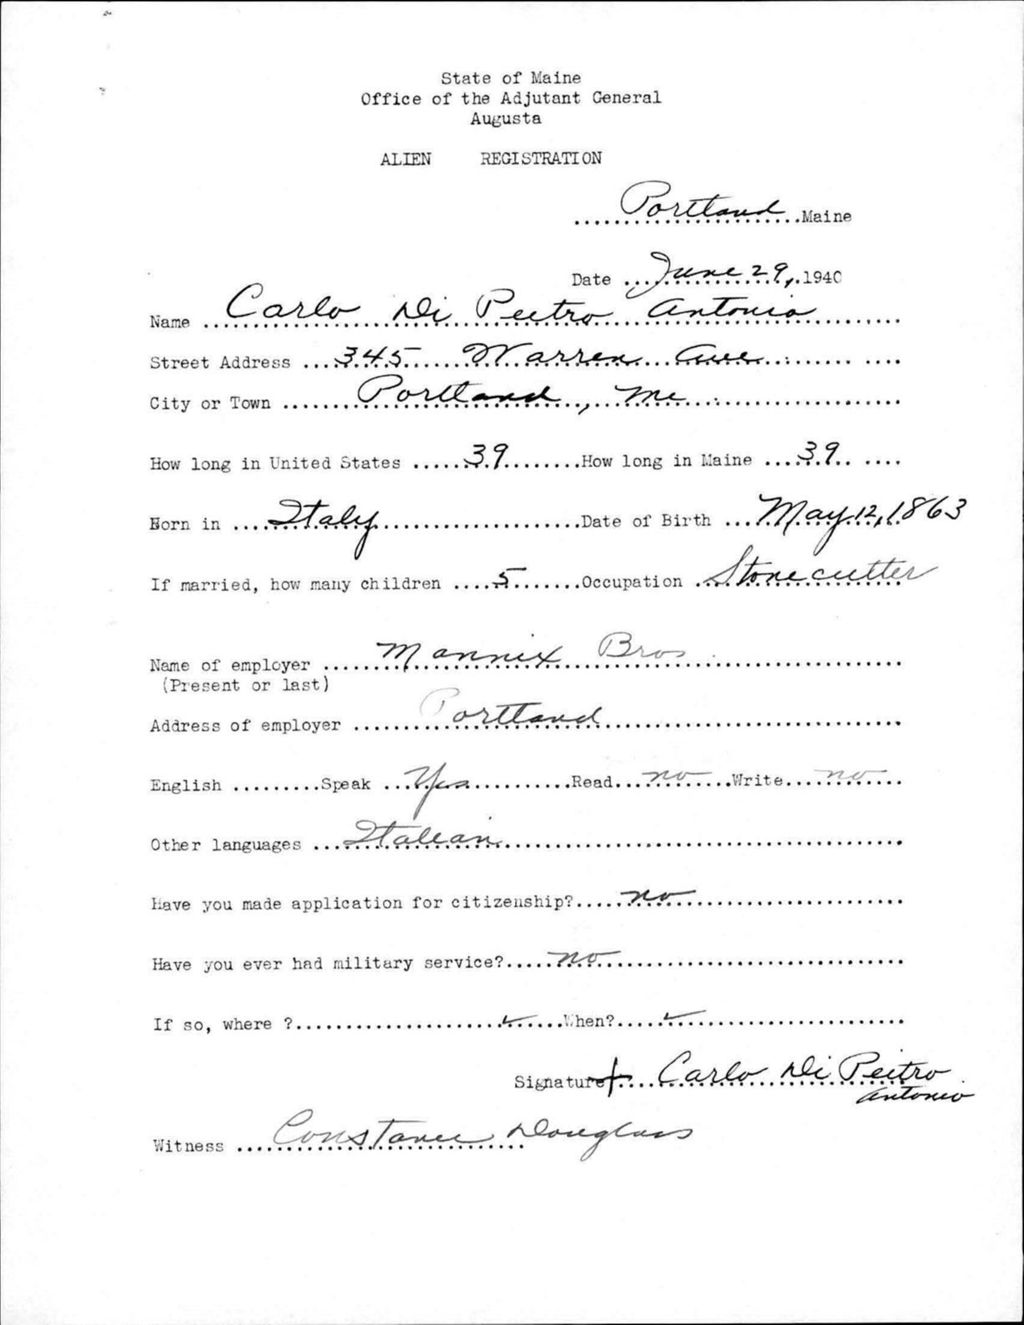 State of Maine
Office of the Adjutant General
Augusta
ALIEN REGISTRATION
Portland Maine
Date June 29, 1940
Name Carlo Di Peitro Antonio
Street Address 345 Warren Ave
City or Town Portland, Me
How long in United States 39 How long in Maine 39
Born in Italy Date of Birth May 12, 1863
If married, how many children 5 Occupation Stone cutter
Name of employer Mannix Bros
(Present or last)
Address of employer Portland
English Speak Yes Read no Write no
Other languages Italian
Have you made application for citizenship? no
Have you ever had military service? no
If so, where ? ✓ When? ✓
Signature + Carlo Di Peitro
Antonio
Witness Constance Douglass